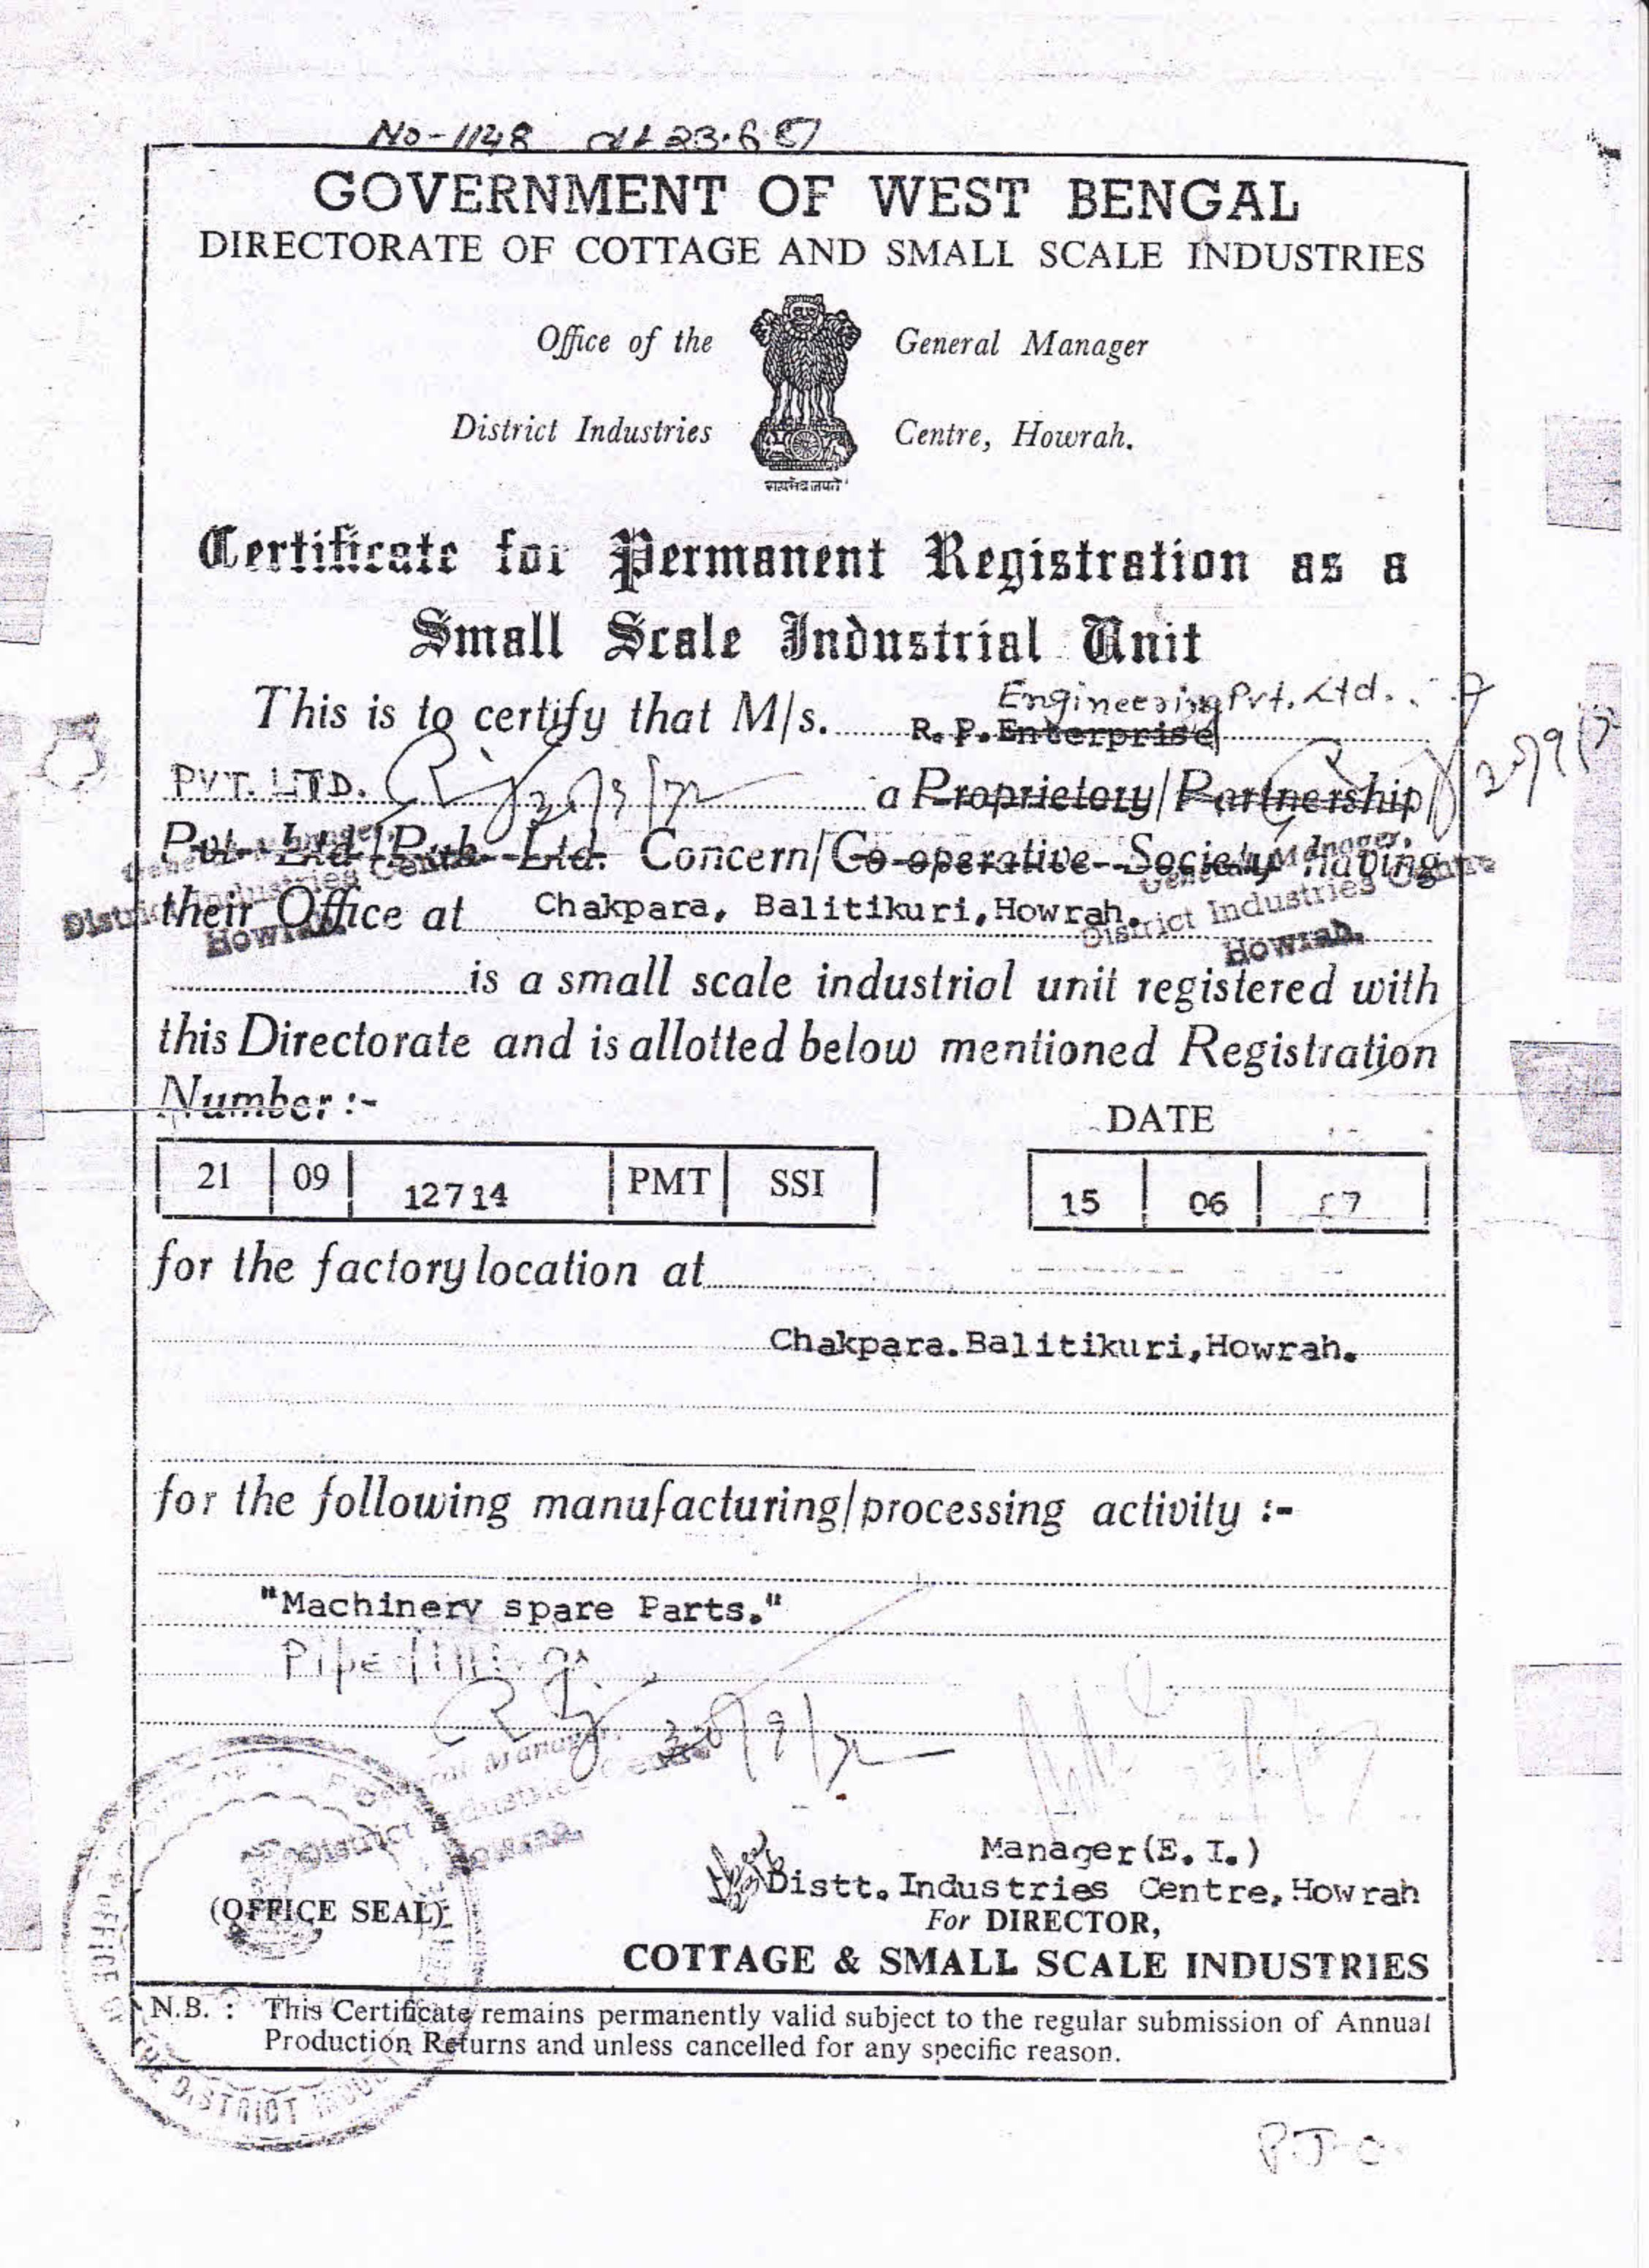 No-1148 dt 23.6.87
GOVERNMENT OF WEST BENGAL
DIRECTORATE OF COTTAGE AND SMALL SCALE INDUSTRIES
Office of the General Manager
District Industries Centre, Howrah.
सत्यमेव जयते
Certificate for Permanent Registration as a
Small Scale Industrial Unit
Engineering Pvt. Ltd.
This is to certify that M/s. R. P. Enterprise
PVT. LTD. a Proprietory/Partnership
Pvt. Ltd./Pub. Ltd. Concern/Co-operative Society having
General Manager,
District Industries Centre
Howrah.
General Manager,
District Industries Centre
Howrah.
their Office at Chakpara, Balitikuri, Howrah.
is a small scale industrial unit registered with
this Directorate and is allotted below mentioned Registration
Number :-
DATE
21 09 12714 PMT SSI 15 06 87
for the factory location at
Chakpara. Balitikuri, Howrah.
for the following manufacturing/processing activity :-
"Machinery spare Parts."
Pipe fittings
General Manager,
District Industries Centre
Howrah.
Manager (E. I.)
Distt. Industries Centre, Howrah
(OFFICE SEAL)
For DIRECTOR,
COTTAGE & SMALL SCALE INDUSTRIES
N.B. : This Certificate remains permanently valid subject to the regular submission of Annual
Production Returns and unless cancelled for any specific reason.
OFFICE OF THE DISTRICT
P.T.O.